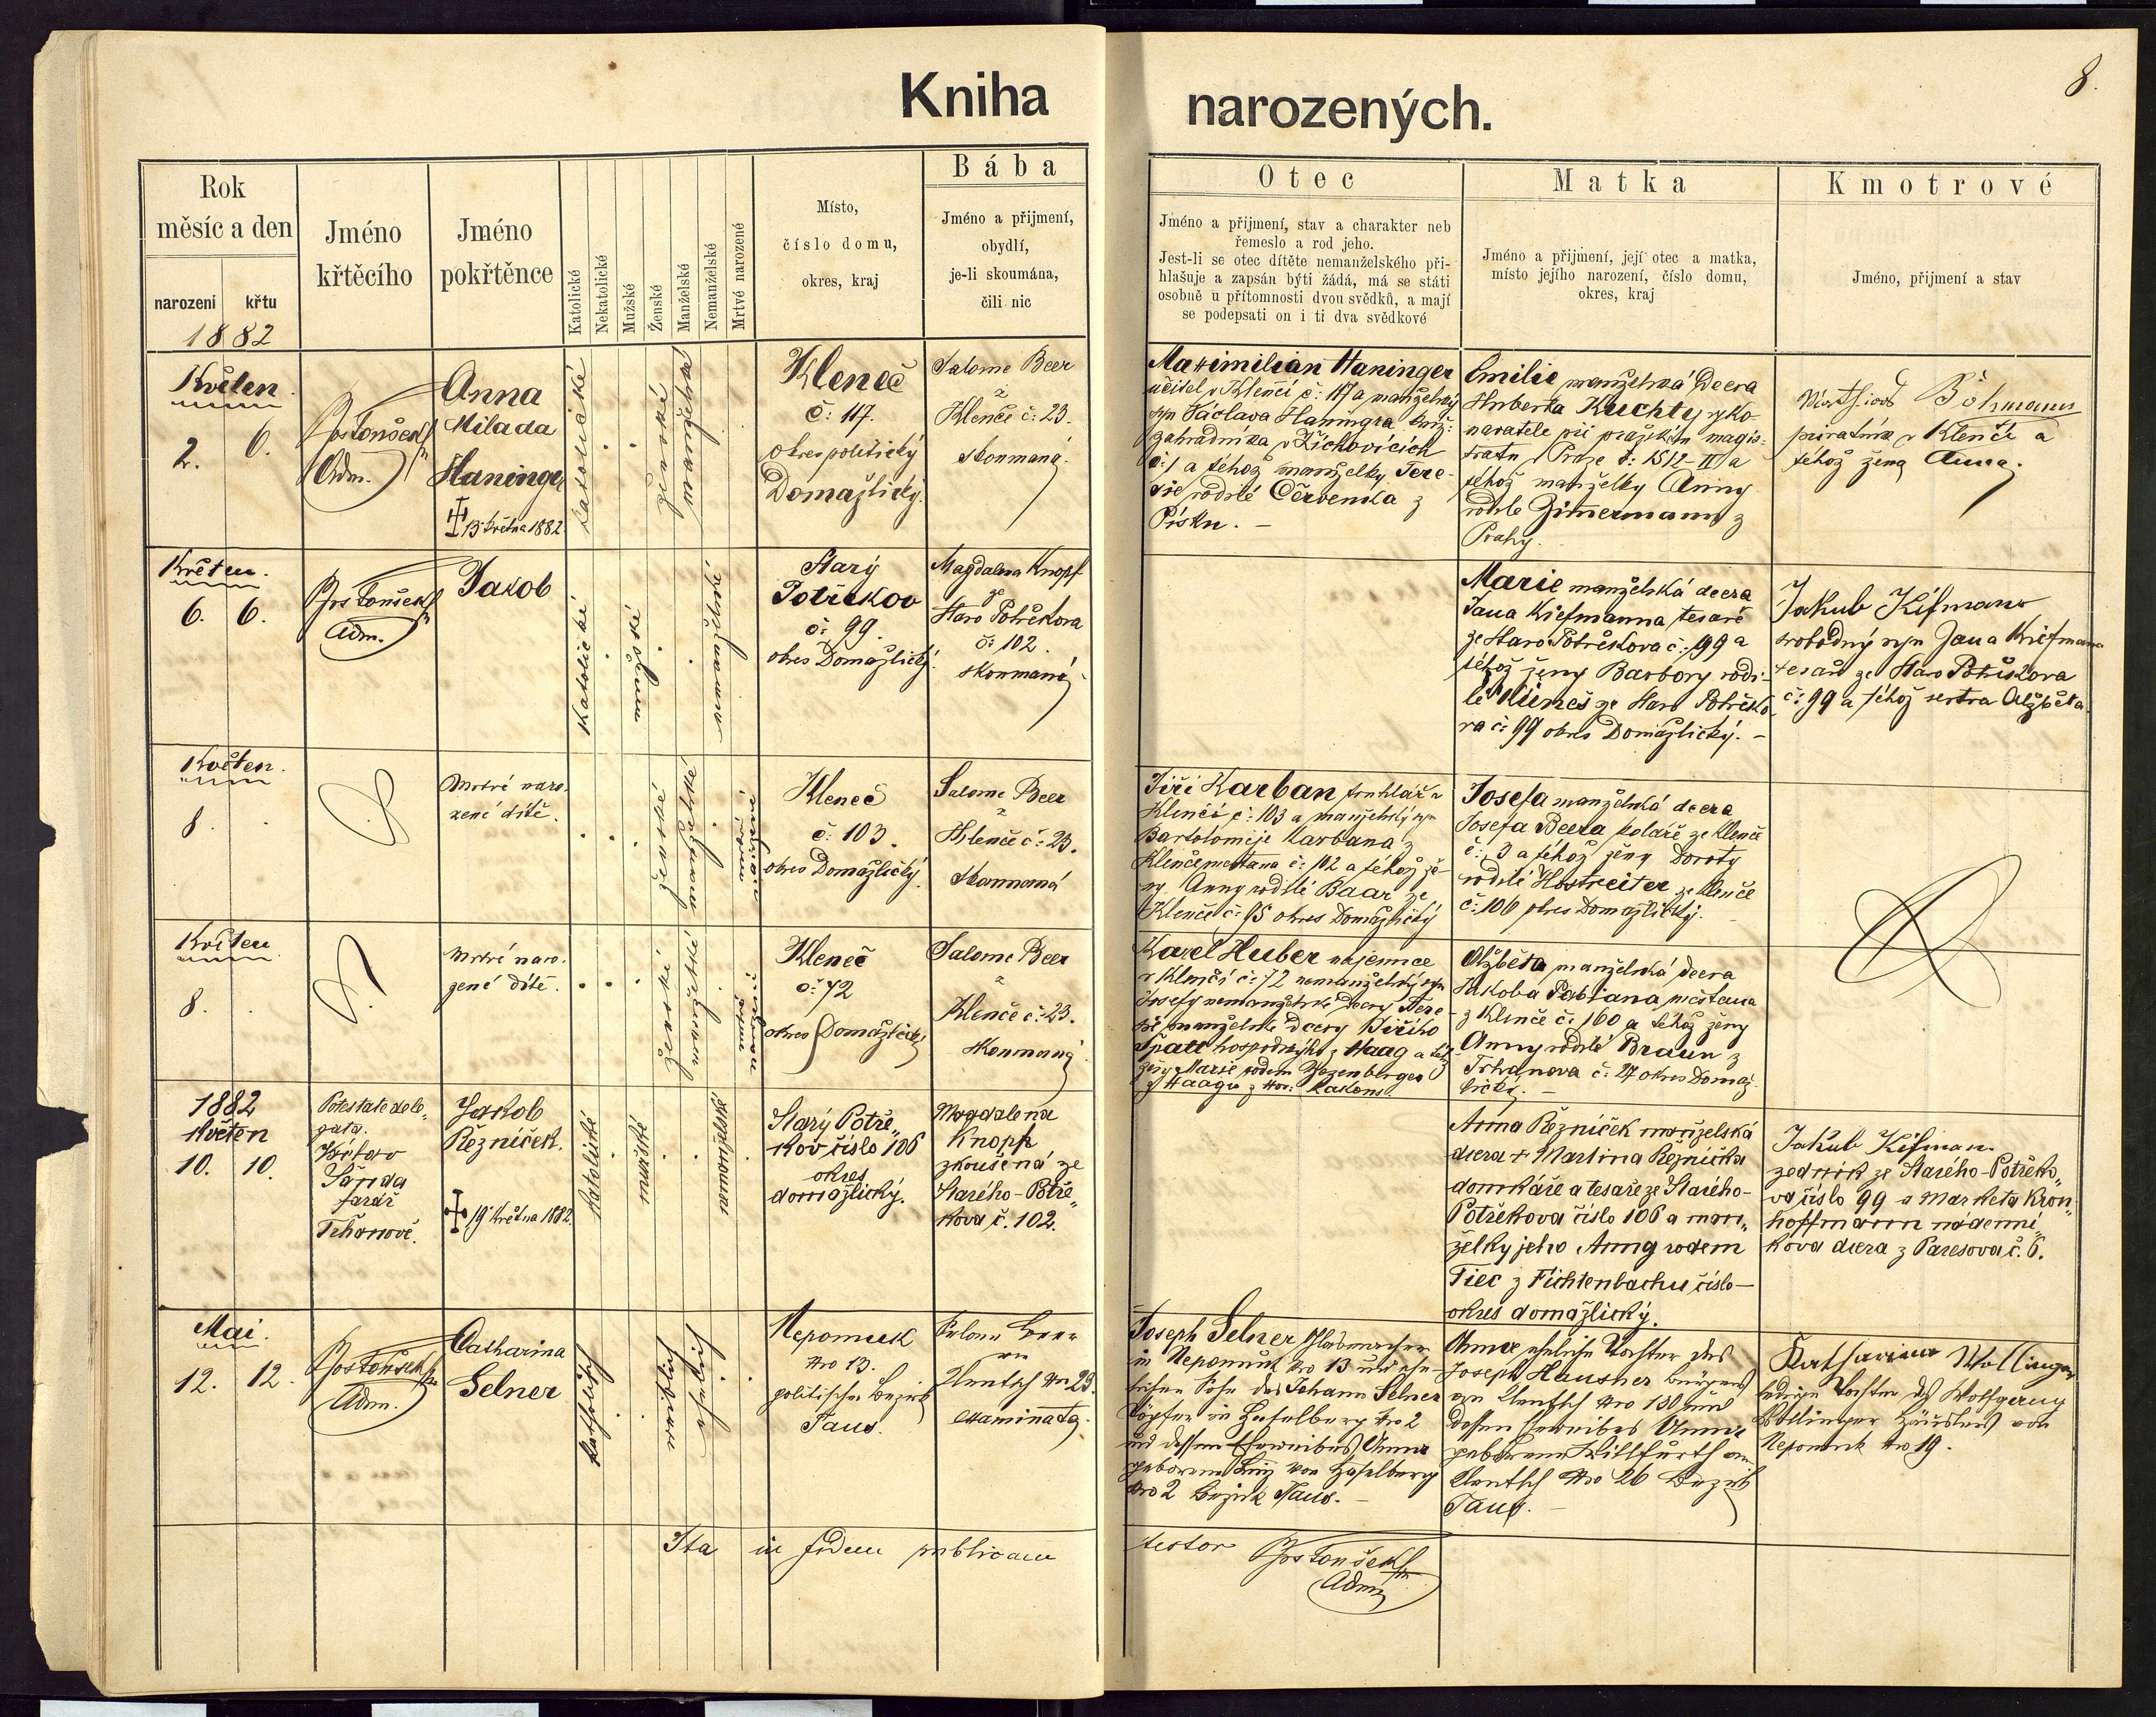 8.
Kniha
narozených.
Rok
měsíc a den
narození
křtu
Jméno
křtěcího
Jméno
pokřtěnce
Katolické
Nekatolické
Mužské
Ženské
Manželské
Nemanželské
Mrtvé narozené
Místo,
číslo domu,
okres, kraj
Bába
Jméno a přijmení,
obydlí,
je-li skoumána,
čili nic
Otec
Jméno a přijmení, stav a charakter neb
řemeslo a rod jeho.
Jest-li se otec dítěte nemanželského při-
hlašuje a zapsán býti žádá, má se státi
osobně u přítomnosti dvou svědků, a mají
se podepsati on i ti dva svědkové
Matka
Jméno a přijmení, její otec a matka,
místo jejího narození, číslo domu,
okres, kraj
Kmotrové
Jméno, přijmení a stav
1882
Květen
2.
6.
Adm.
Anna
Milada
Haninger
13 května 1882
katolické
ženské
manželské
Kleneč
č: 117.
okres politický
Domažlický.
Salome Beer
z
Klenče č: 23.
skoumaná.
Maximilian Haninger
učitel v Klenčí č: 117 a manželský
syn Václava Haningra
zahradníka v Žichovicích
č: 1 a téhož manželky Tere-
sie rodilé Červenka z
Písku. —
Emilie manželská dcera
Huberta Kuchty vyko-
navatele při pražském magis-
tratu v Praze č: 1512-II a
téhož manželky Anny
rodilé Zimermann z
Prahy.
Mathias Böhmann
privatník v Klenčí a
téhož žena Anna.
Květen.
6.
6.
Adm.
Jakob
katolické
mužské
nemanželské
Starý
Potřekov
č: 99.
okres Domažlický.
Magdalena Knopf
ze
Staro Potřekova
č: 102.
skoumaná
Marie manželská dcera
Jana Kiefmanna tesaře
ze Staro Potřekova č: 99 a
téhož ženy Barbory rodi-
lé Klimeš ze Staro Potřeko-
va č: 99 okres Domažlický. —
Jakub Kifmann
svobodný syn Jana Kiefmana
tesaře ze Staro Potřekova
č: 99 a téhož sestra Alžběta.
Květen.
8.
Mrtvé naro-
zené dítě.
ženské
manželské
mrtvé
narozené
Kleneč
č: 103.
okres Domažlický.
Salome Beer
z
Klenče č: 23.
skoumaná
Jiří Karban truhlář v
Klenčí č: 103 a manželský syn
Bartoloměje Karbana z
Klenče č: 102 a téhož že-
ny Anny rodilé Baar ze
Klenče č: 95 okres Domažlický
Josefa manželská dcera
Josefa Beera koláře ze Klenče
č: 3 a téhož ženy Doroty
rodilé Hostreiter ze Klenče
č: 100 okres Domažlický.
Květen
8.
Mrtvé naro-
zené dítě.
ženské
manželské
mrtvé
narozené
Kleneč
č: 72
okres Domažlický
Salome Beer
z
Klenče č: 23.
skoumaná
Karel Huber nájemce
v Klenčí č: 72 nemanželský syn
Josefy nemanželské dcery Tere-
sie manželské dcery Jiřího
Spatt z Haag a téhož
ženy Marie rodem
z Haagu
Alžběta manželská dcera
Jakoba Pabiana měšťana
z Klenče č: 160 a téhož ženy
Anny rodilé Braun z
Trhanova č: 27 okres Domaž-
lický. —
1882
Květen
10.
10.
Potestate dele-
gata.
Šanda
farář
Trhanově.
Jakob
Řezníček.
19 května 1882
katolické
mužské
nemanželské
Starý Potře-
kov číslo 106
okres
domažlický.
Magdalena
Knopf
zkoušená ze
Starého-Potře-
kova č. 102.
Anna Řezníček manželská
dcera + Martina Řezníčka
domkáře a tesaře ze Starého-
Potřekova číslo 106 a man-
želky jeho Anny rodem
Tiec z Fichtenbachu číslo—
okres domažlický.
Jakub Kifman
zedník ze Starého-Potřeko-
va číslo 99 a Markéta Kron-
hoffmann nádenní-
kova dcera z Paresova č. 6.
Mai.
12.
12.
Adm.
Catharina
Selner
katholisch
weiblich
ehelich
Nepomuk
Nro 13.
politischer Bezirk
Taus.
Salome Beer
von
Klentsch Nro 23.
examinata.
Joseph Selner Glasmacher
in Nepomuk Nro 13 und ehe-
licher Sohn des Johann Selner
in Haselberg Nro 2
und dessen Eheweibes Anna
geborenen von Haselberg
Nro 2 Bezirk Taus. —
Anna eheliche Tochter des
Joseph Hausner Bürgers
von Klentsch Nro 130 und
dessen Eheweibes Anna
geborenen von
Klentsch Nro 26 Bezirk
Taus. —
Katharina Wollinger
ledige Tochter des Wolfgang
Wollinger Häuslers von
Nepomuk Nro 19.
Ita in fidem publicam
testor
Adm.